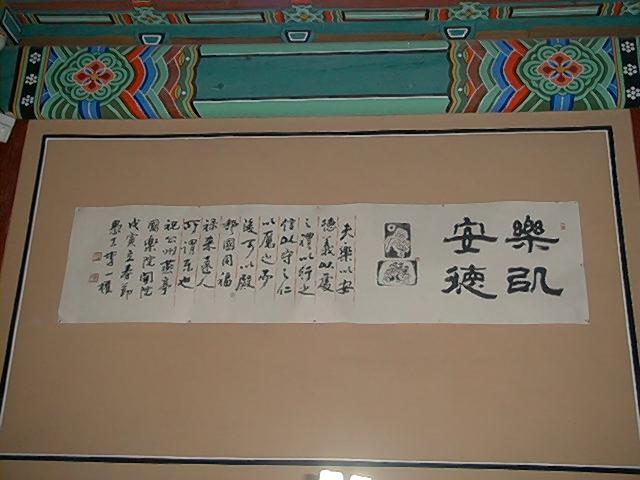 樂㠯
安德
夫樂以安
德義以處
之禮以行之
信以守之仁
以厲之而
後可以殿
邦國同福
祿来遠人
所謂樂也
祝公州燕亭
國樂院開院
戊寅立春節